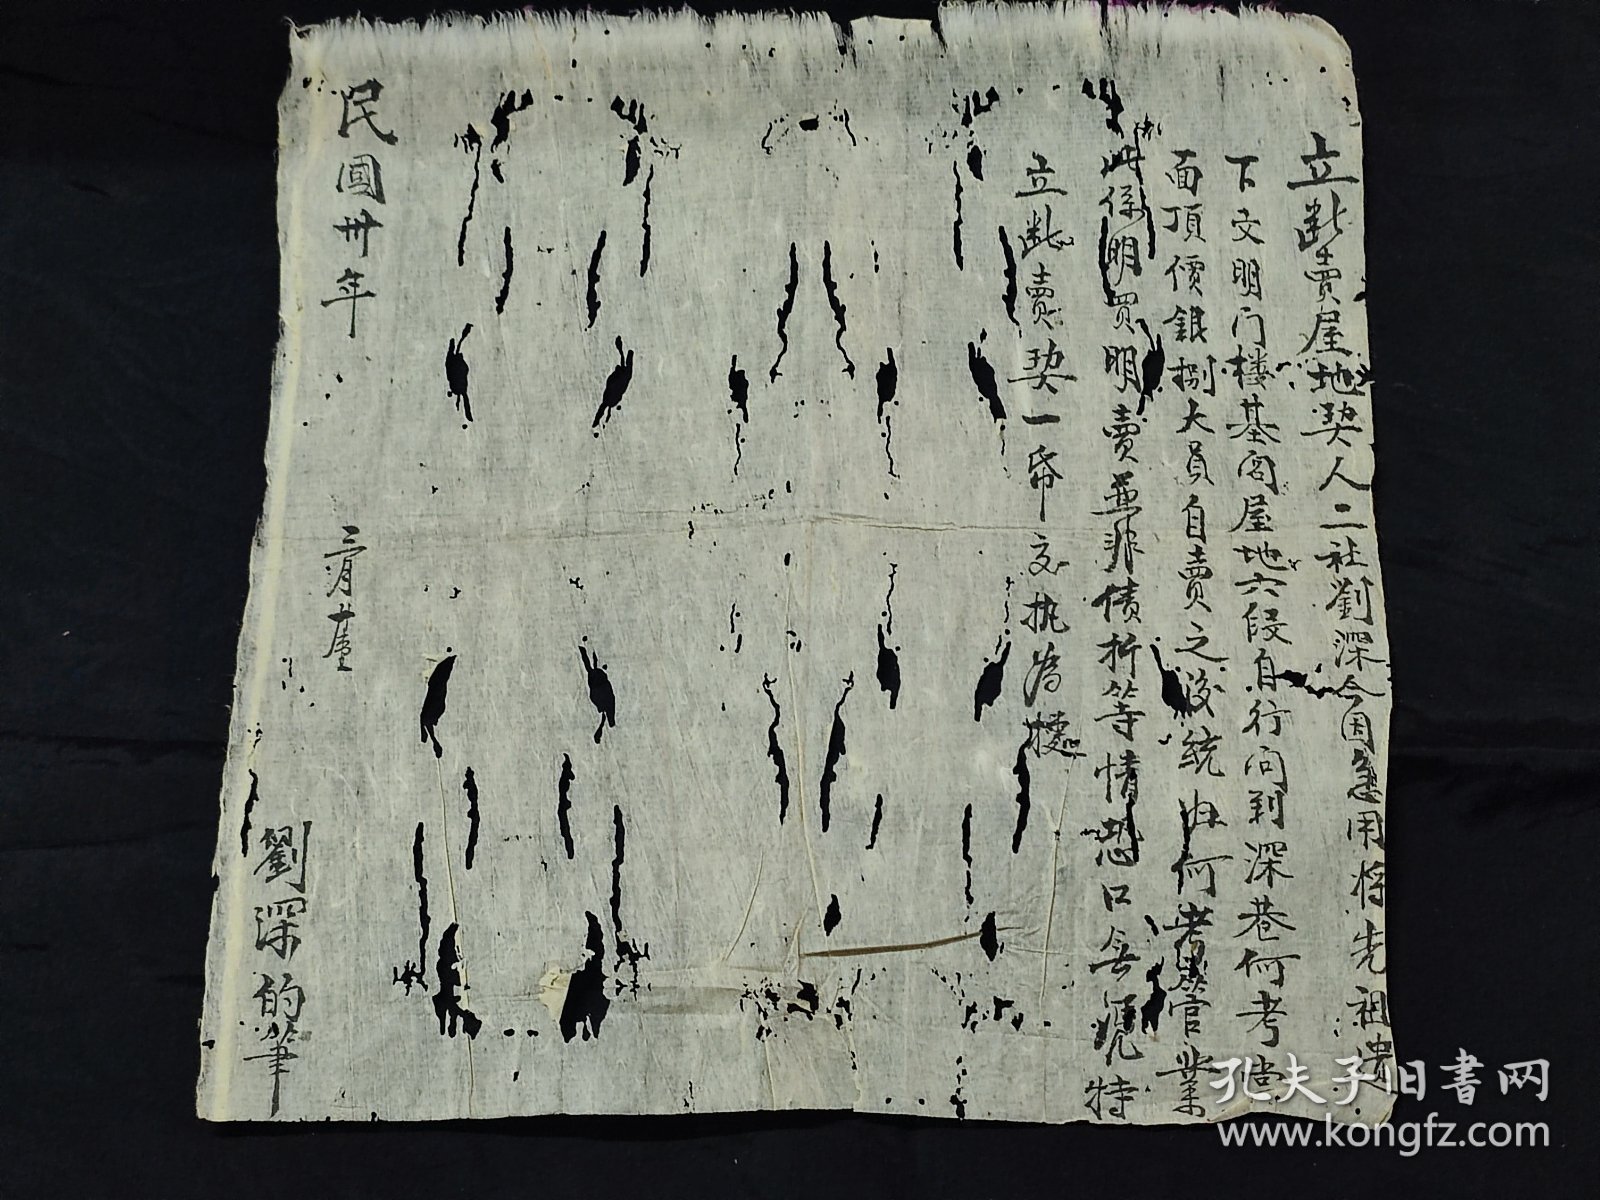 立斷賣屋地契人二社劉深今因急用將先祖遺
下文明门楼基閣屋地六段自行问到深巷何考
面頂價銀捌大員自賣之後統归何考管業
此係明買明賣並非債折等情恐口無憑特
立斷賣契一帋交执為據
民國卅年 二月廿 劉深的筆
孔夫子旧書网
www.kongfz.com